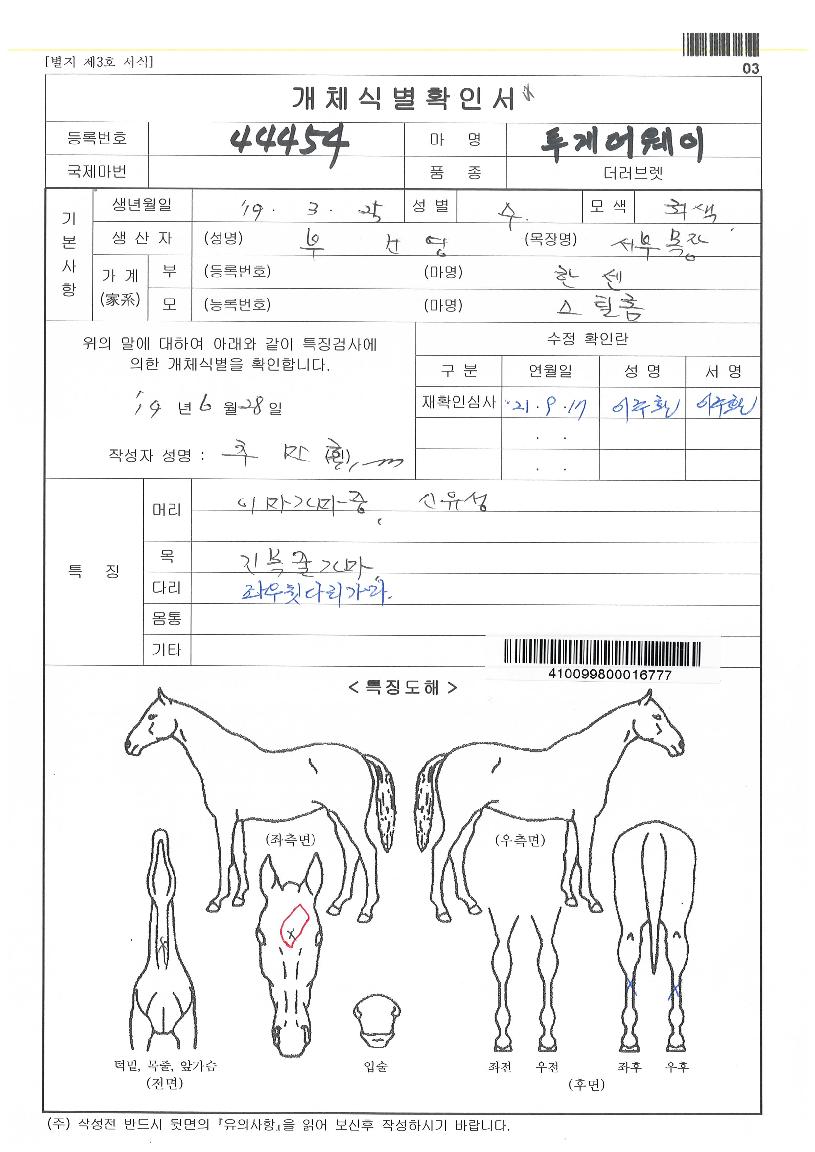 [별지 제3호 서식]
03
개체식별확인서
등록번호 44454 마 명 투게어웨이
국제마번 품 종 더러브렛
기본사항
생년월일 '19. 3. 25 성별 수 모색 회색
생산자 (성명) 부 영 (목장명) 서부목장
가계 (家系) 부 (등록번호) (마명) 한센
모 (등록번호) (마명) 스틸홈
위의 말에 대하여 아래와 같이 특징검사에
의한 개체식별을 확인합니다.
'19 년 6 월 28 일
작성자 성명 :
수정 확인란
구분 연월일 성명 서명
재확인심사 '21. 9. 17 이주환 이주환
. .
. .
특 징
머리 이마가마중, 선유성
목 진복줄가마
다리 좌우뒷다리가마.
몸통
기타
410099800016777
< 특징도해 >
(좌측면) (우측면)
턱밑, 목줄, 앞가슴 입술 좌전 우전 좌후 우후
(전면) (후면)
(주) 작성전 반드시 뒷면의 『유의사항』을 읽어 보신후 작성하시기 바랍니다.